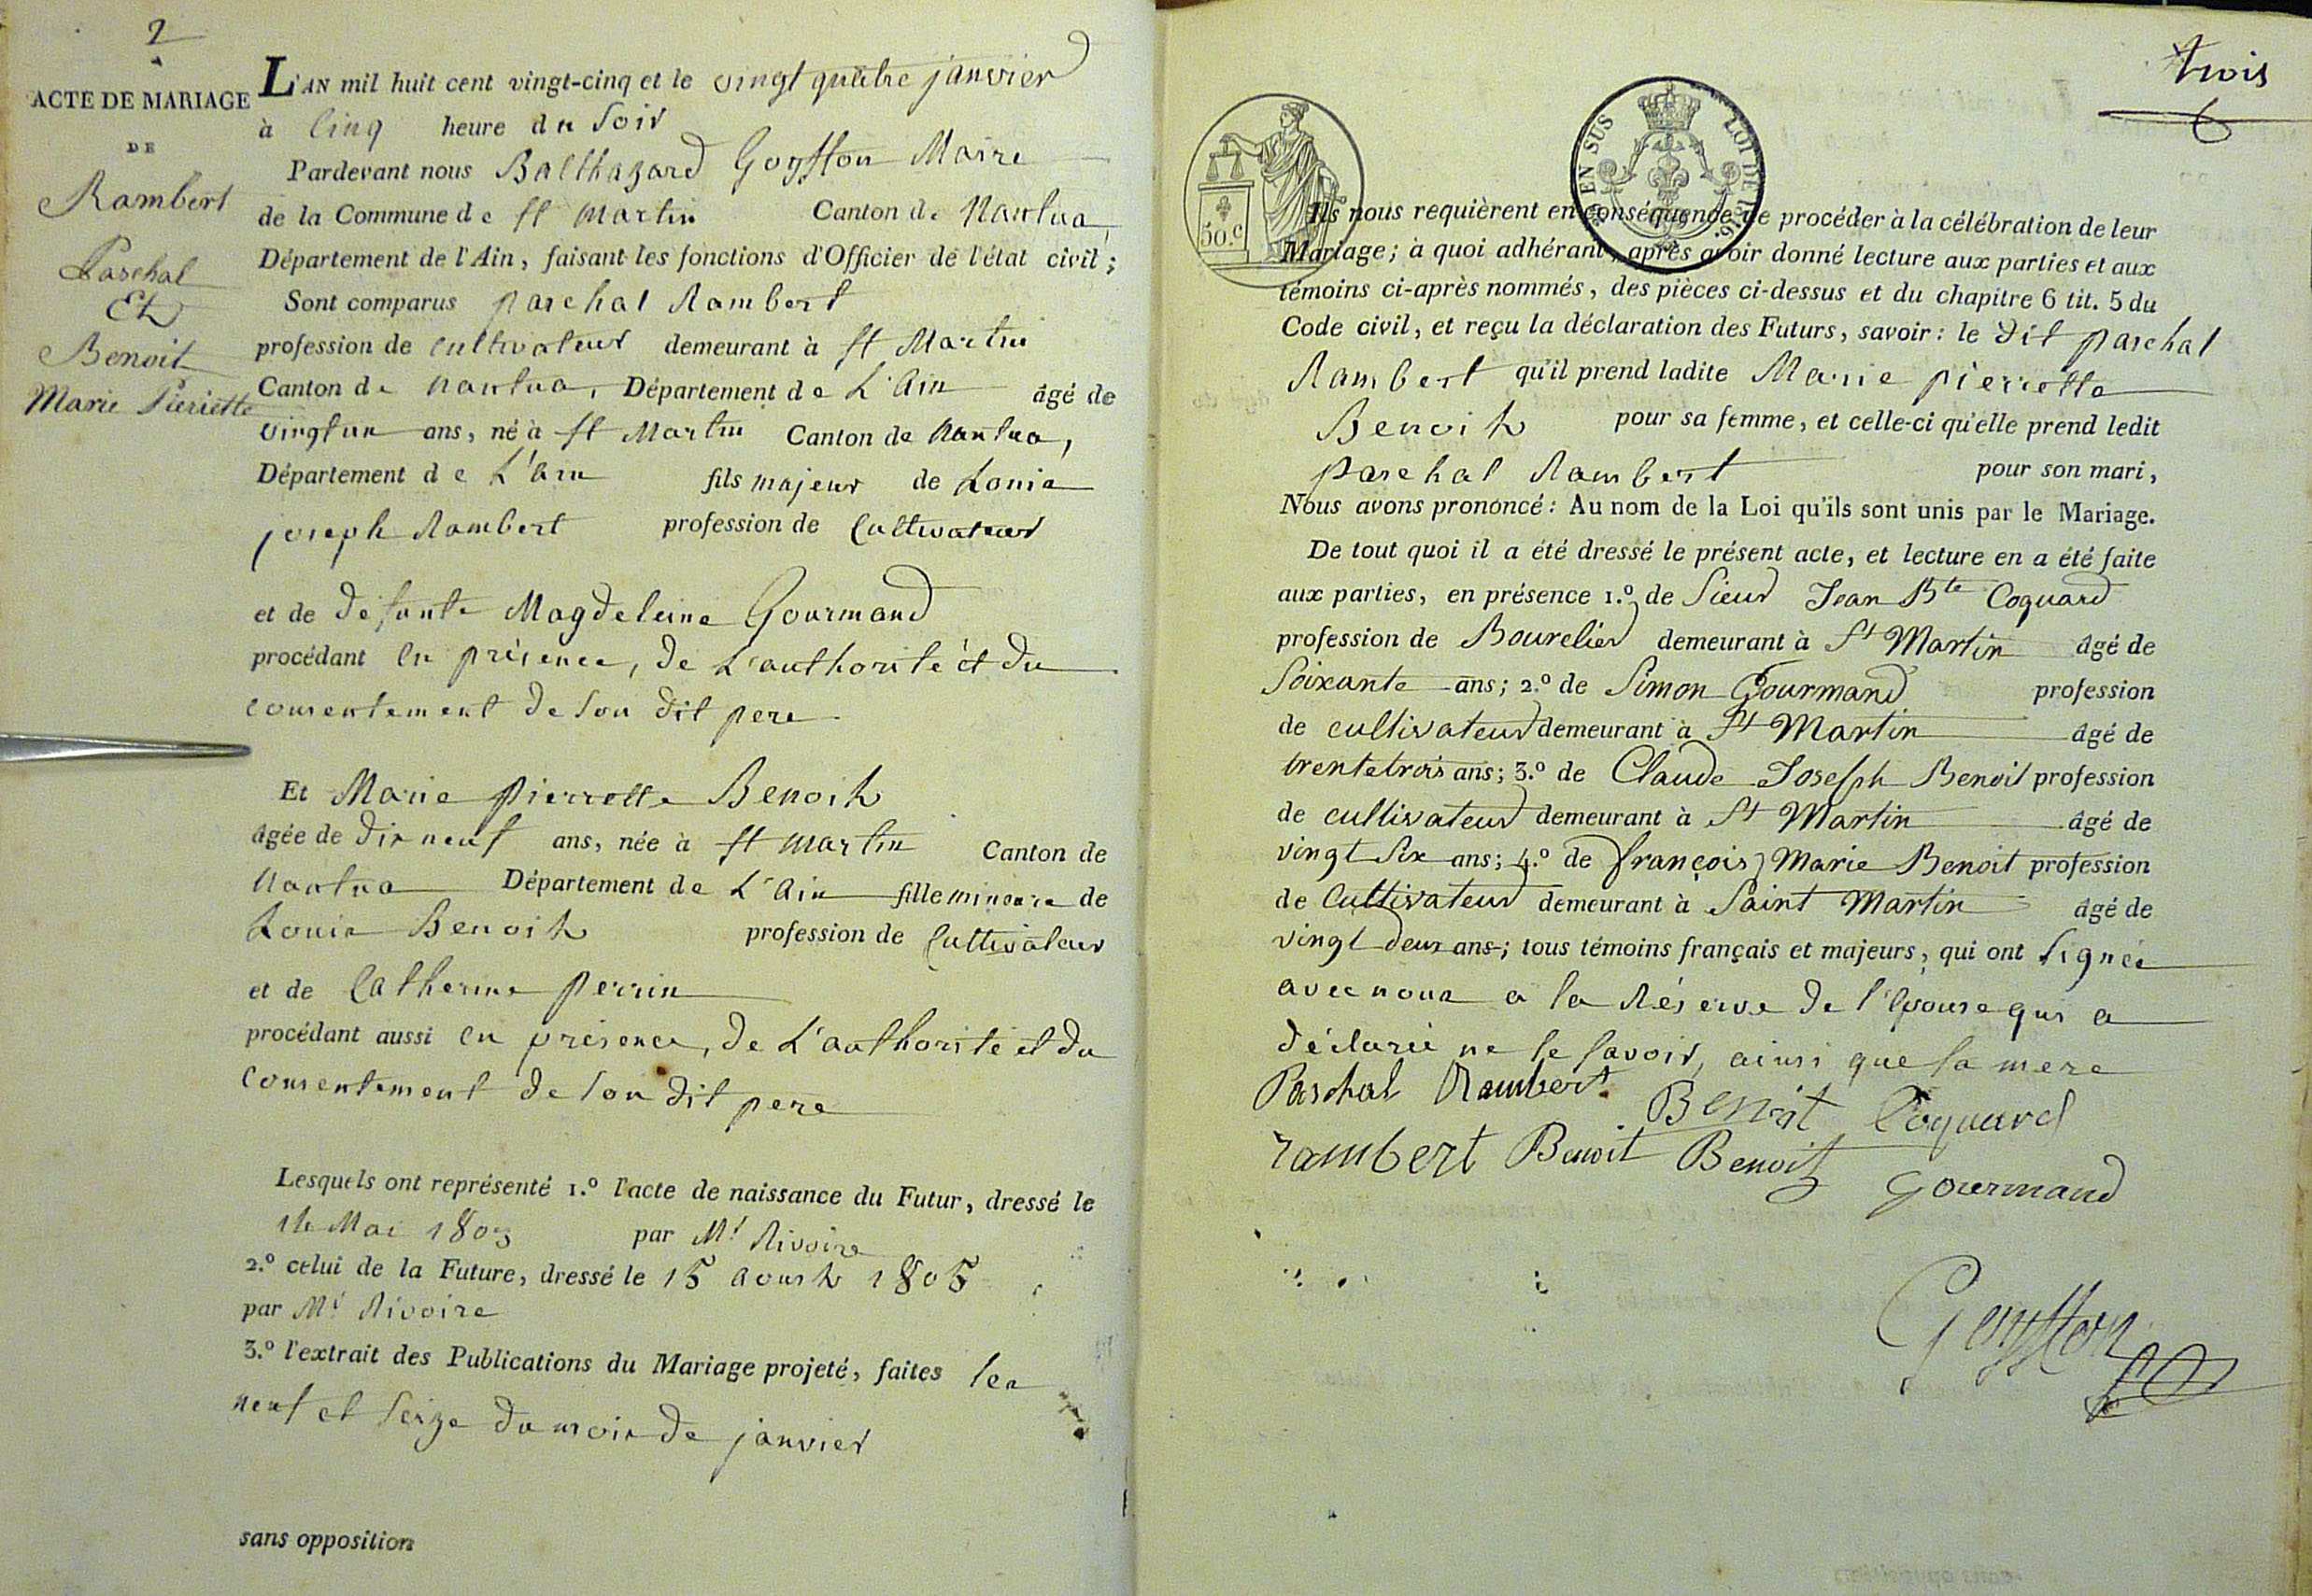 2
ACTE DE MARIAGE
DE
Rambert
Paschal
Et
Benoit
Marie Pieriette
L'AN mil huit cent vingt-cinq et le vingt quatre janvier
à Cinq heure du Soir
Pardevant nous Balthazard Goyffon Maire
de la Commune de st Martin Canton de Nantua
Département de l'Ain, faisant les fonctions d'Officier de l'état civil;
Sont comparus paschal Rambert
profession de cultivateur demeurant à st Martin
Canton de nantua, Département de L'Ain âgé de
vingt un ans, né à st Martin Canton de Nantua,
Département de L'ain fils majeur de Louis
joseph Rambert profession de Cultivateur
et de defunte Magdeleine Gourmand
procédant en présence, de L'authorité et du
consentement de son dit pere
Et Marie pierrette Benoit
âgée de dix neuf ans, née à st martin Canton de
Nantua Département de L'Ain fille mineure de
Louis Benoit profession de Cultivateur
et de Catherine perrin
procédant aussi en présence, de L'authorité et du
Consentement de son dit pere
Lesquels ont représenté 1.º l'acte de naissance du Futur, dressé le
Mai 1803 par Mr Rivoire
2.º celui de la Future, dressé le 15 Aoust 1805
par Mr Rivoire
3.º l'extrait des Publications du Mariage projeté, faites les
neuf et seize du mois de janvier
sans opposition
trois
50.c
EN SUS LOI DE 1816.
Ils nous requièrent en conséquence de procéder à la célébration de leur
Mariage; à quoi adhérant, après avoir donné lecture aux parties et aux
témoins ci-après nommés, des pièces ci-dessus et du chapitre 6 tit. 5 du
Code civil, et reçu la déclaration des Futurs, savoir: le dit paschal
Rambert qu'il prend ladite Marie pierrette
Benoit pour sa femme, et celle-ci qu'elle prend ledit
paschal Rambert pour son mari,
Nous avons prononcé: Au nom de la Loi qu'ils sont unis par le Mariage.
De tout quoi il a été dressé le présent acte, et lecture en a été faite
aux parties, en présence 1.º de Sieur Jean Bte Coquard
profession de Bourelier demeurant à St Martin âgé de
Soixante ans; 2.º de Simon Gourmand profession
de cultivateur demeurant à St Martin âgé de
trente trois ans; 3.º de Claude Joseph Benoit profession
de cultivateur demeurant à St Martin âgé de
vingt Six ans; 4.º de françois Marie Benoit profession
de Cultivateur demeurant à Saint Martin âgé de
vingt deux ans; tous témoins français et majeurs, qui ont signée
avec nous a la Réserve de l'épouse qui a
déclarée ne le savoir, ainsi que sa mere
Paschal Rambert Benoit Coquard
rambert Benoit Benoit gourmand
Goyffon